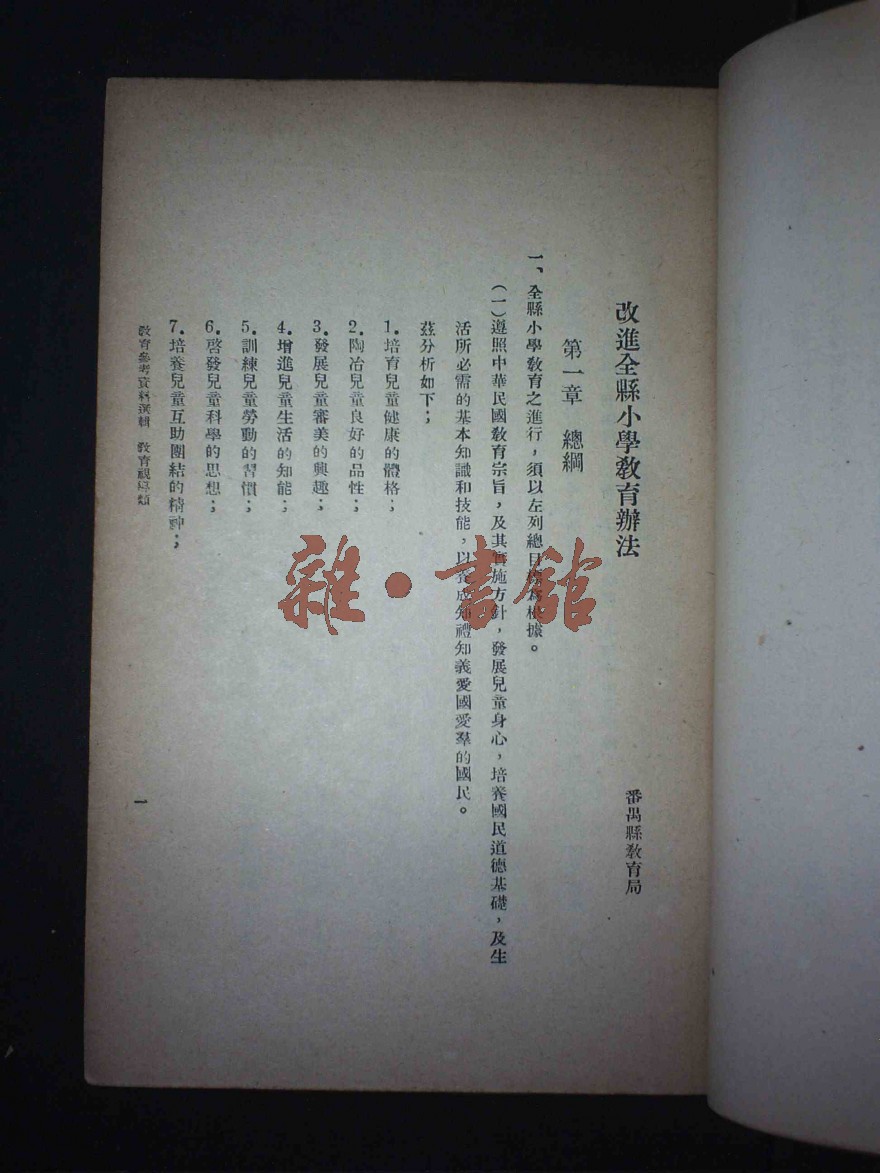 改進全縣小學教育辦法
番禺縣教育局
第一章　總綱
一、全縣小學教育之進行，須以左列總目標為根據。
（一）遵照中華民國教育宗旨，及其實施方針，發展兒童身心，培養國民道德基礎，及生
活所必需的基本知識和技能，以養成知禮知義愛國愛羣的國民。
茲分析如下；
1．培育兒童健康的體格；
2．陶冶兒童良好的品性；
3．發展兒童審美的興趣；
4．增進兒童生活的知能；
5．訓練兒童勞動的習慣；
6．啓發兒童科學的思想；
7．培養兒童互助團結的精神；
教育參考資料選輯　教育視導類
一
雜·書館